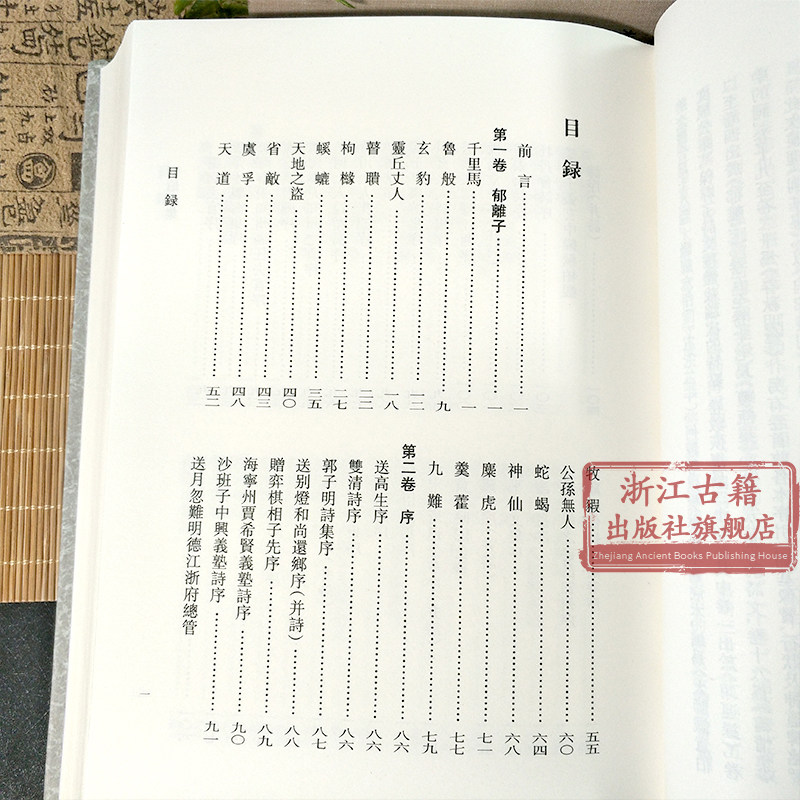 目録
前言……一
第一卷 郁離子……一
千里馬……一
魯般……九
玄豹……一二
靈丘丈人……一八
瞽聵……二二
枸櫞……二七
螇螰……三五
天地之盜……四〇
省敵……四三
虞孚……四八
天道……五二
牧豭……五五
公孫無人……六〇
蛇蝎……六四
神仙……六八
麋虎……七一
羹藿……七七
九難……七九
第二卷 序……八六
送高生序……八六
雙清詩序……八六
郭子明詩集序……八七
送别燈和尚還鄉序(并詩)……八八
贈弈棋相子先序……八九
海寧州賈希賢義塾詩序……九〇
沙班子中興義塾詩序……九一
送月忽難明德江浙府總管
目録
一
浙江古籍
出版社旗舰店
Zhejiang Ancient Books Publishing House